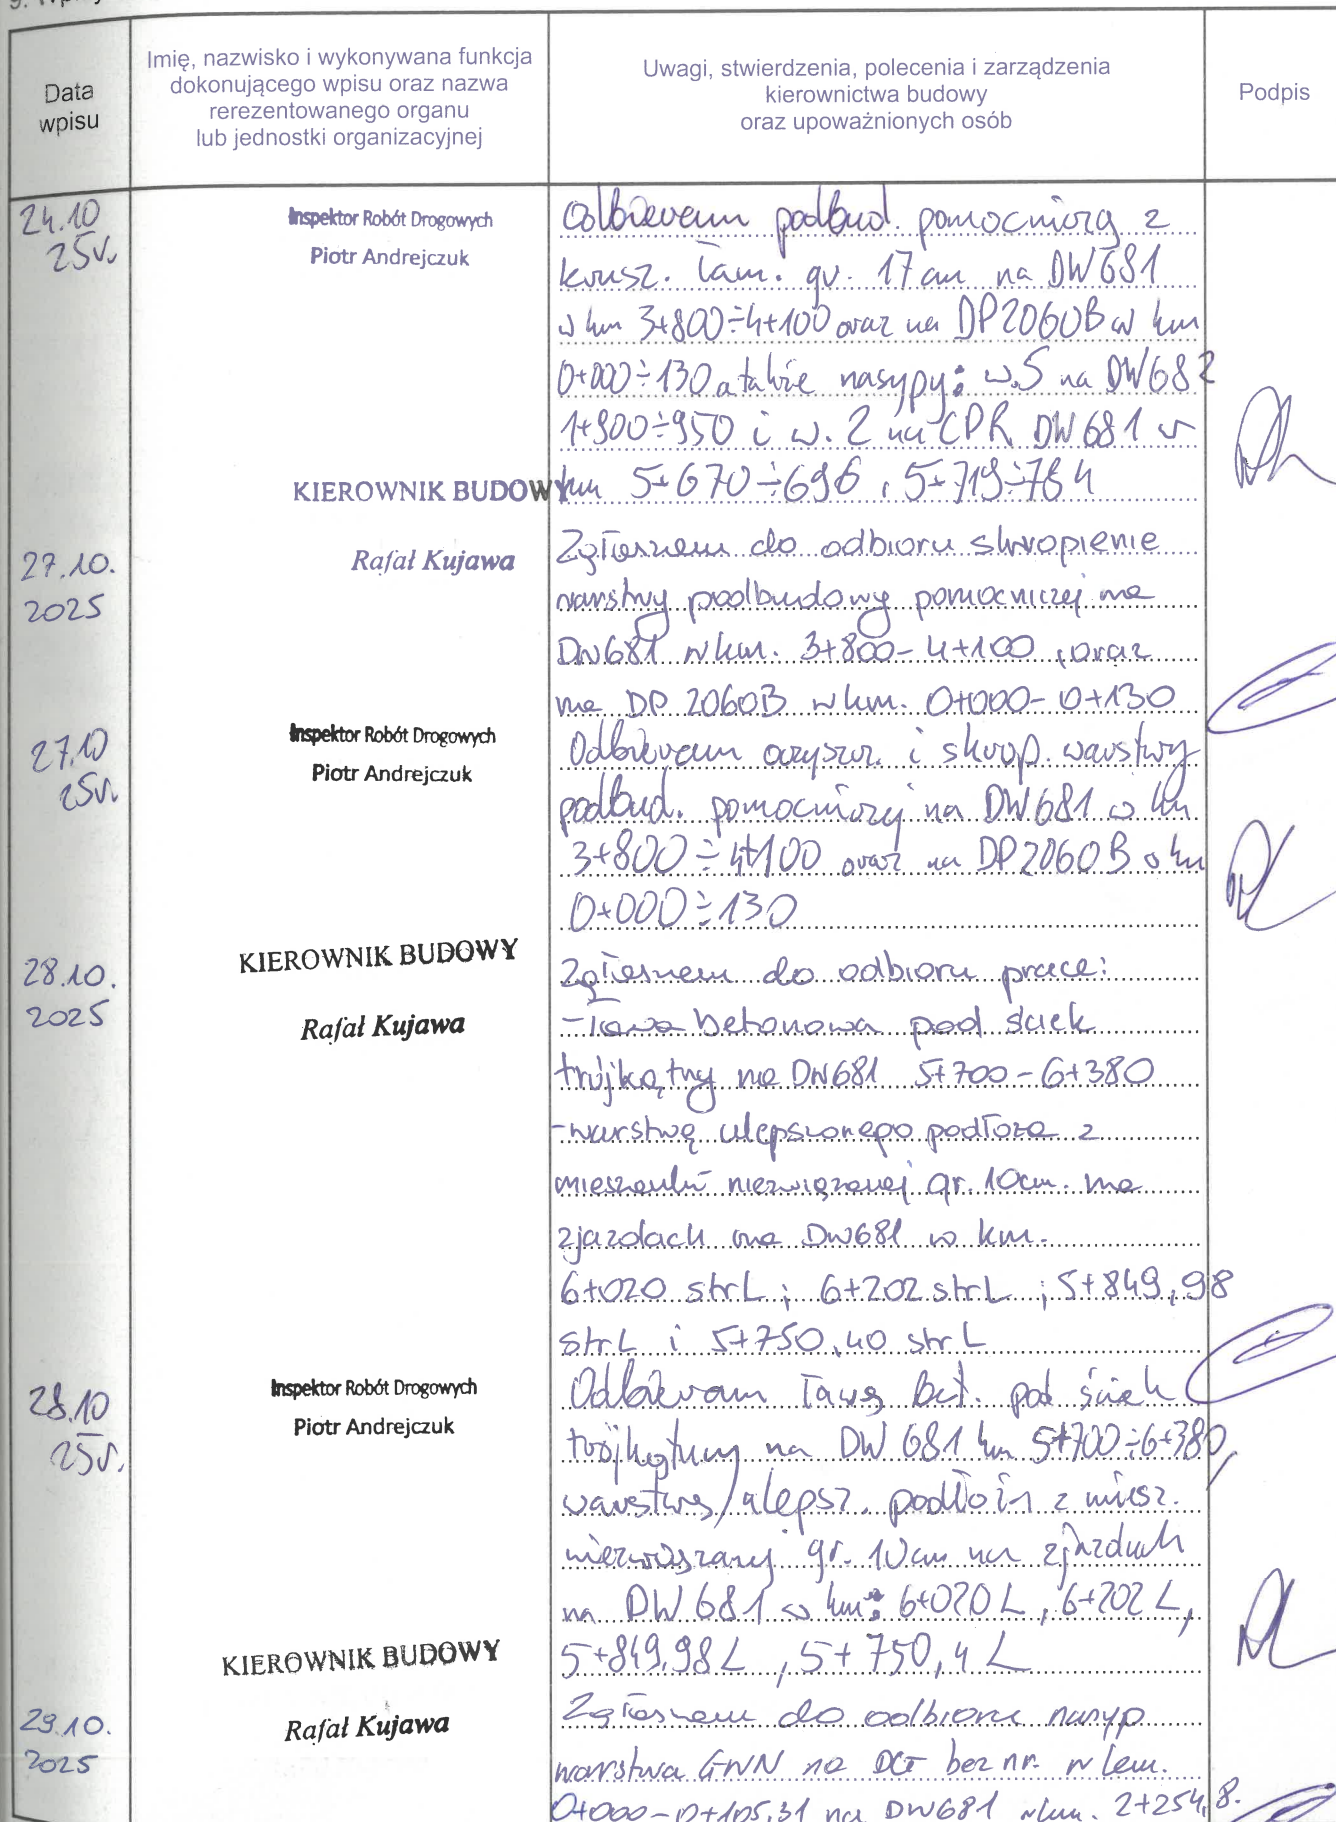 Data
wpisu
Imię, nazwisko i wykonywana funkcja
dokonującego wpisu oraz nazwa
rerezentowanego organu
lub jednostki organizacyjnej
Uwagi, stwierdzenia, polecenia i zarządzenia
kierownictwa budowy
oraz upoważnionych osób
Podpis
24.10
25r.
Inspektor Robót Drogowych
Piotr Andrejczuk
Odbieram podbud. pomocniczą z
krusz. łam. gr. 17 cm na DW681
w km 3+800÷4+100 oraz na DP2060B w km
0+000÷130 a także nasypy: w.5 na DW682
1+900÷950 i w. 2 na CPR DW681 w
km 5+670÷696, 5+719÷784
KIEROWNIK BUDOWY
27.10.
2025
Rafał Kujawa
Zgłaszam do odbioru skropienie
warstwy podbudowy pomocniczej na
DW681 w km. 3+800-4+100, oraz
na DP 2060B w km. 0+000-0+130
27.10
25r.
Inspektor Robót Drogowych
Piotr Andrejczuk
Odbieram oczyszcz. i skrop. warstwy
podbud. pomocniczej na DW681 w km
3+800÷4+100 oraz na DP2060B w km
0+000÷130
KIEROWNIK BUDOWY
28.10.
2025
Rafał Kujawa
Zgłaszam do odbioru prace:
- ława betonowa pod ściek
trójkątny na DW681 5+700-6+380
- warstwę ulepszonego podłoża z
mieszanki niezwiązanej gr. 10cm. na
zjazdach na DW681 w km.
6+020 str L; 6+202 str L; 5+849,98
str L i 5+750,40 str L
28.10
25r.
Inspektor Robót Drogowych
Piotr Andrejczuk
Odbieram ławę bet. pod ściek
trójkątny na DW 681 km 5+700÷6+380,
warstwę ulepsz. podłoża z miesz.
niezwiązanej gr. 10cm na zjazdach
na DW 681 w km: 6+020 L, 6+202 L,
5+849,98 L, 5+750,4 L
KIEROWNIK BUDOWY
29.10.
2025
Rafał Kujawa
Zgłaszam do odbioru nasyp
warstwa GWN na bez nr. w km.
0+000-0+105,31 na DW681 w km. 2+254,8.